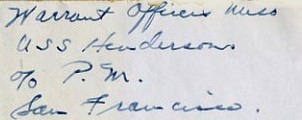 Warrant Officers Mess
USS Henderson
c/o P.M.
San Francisco.